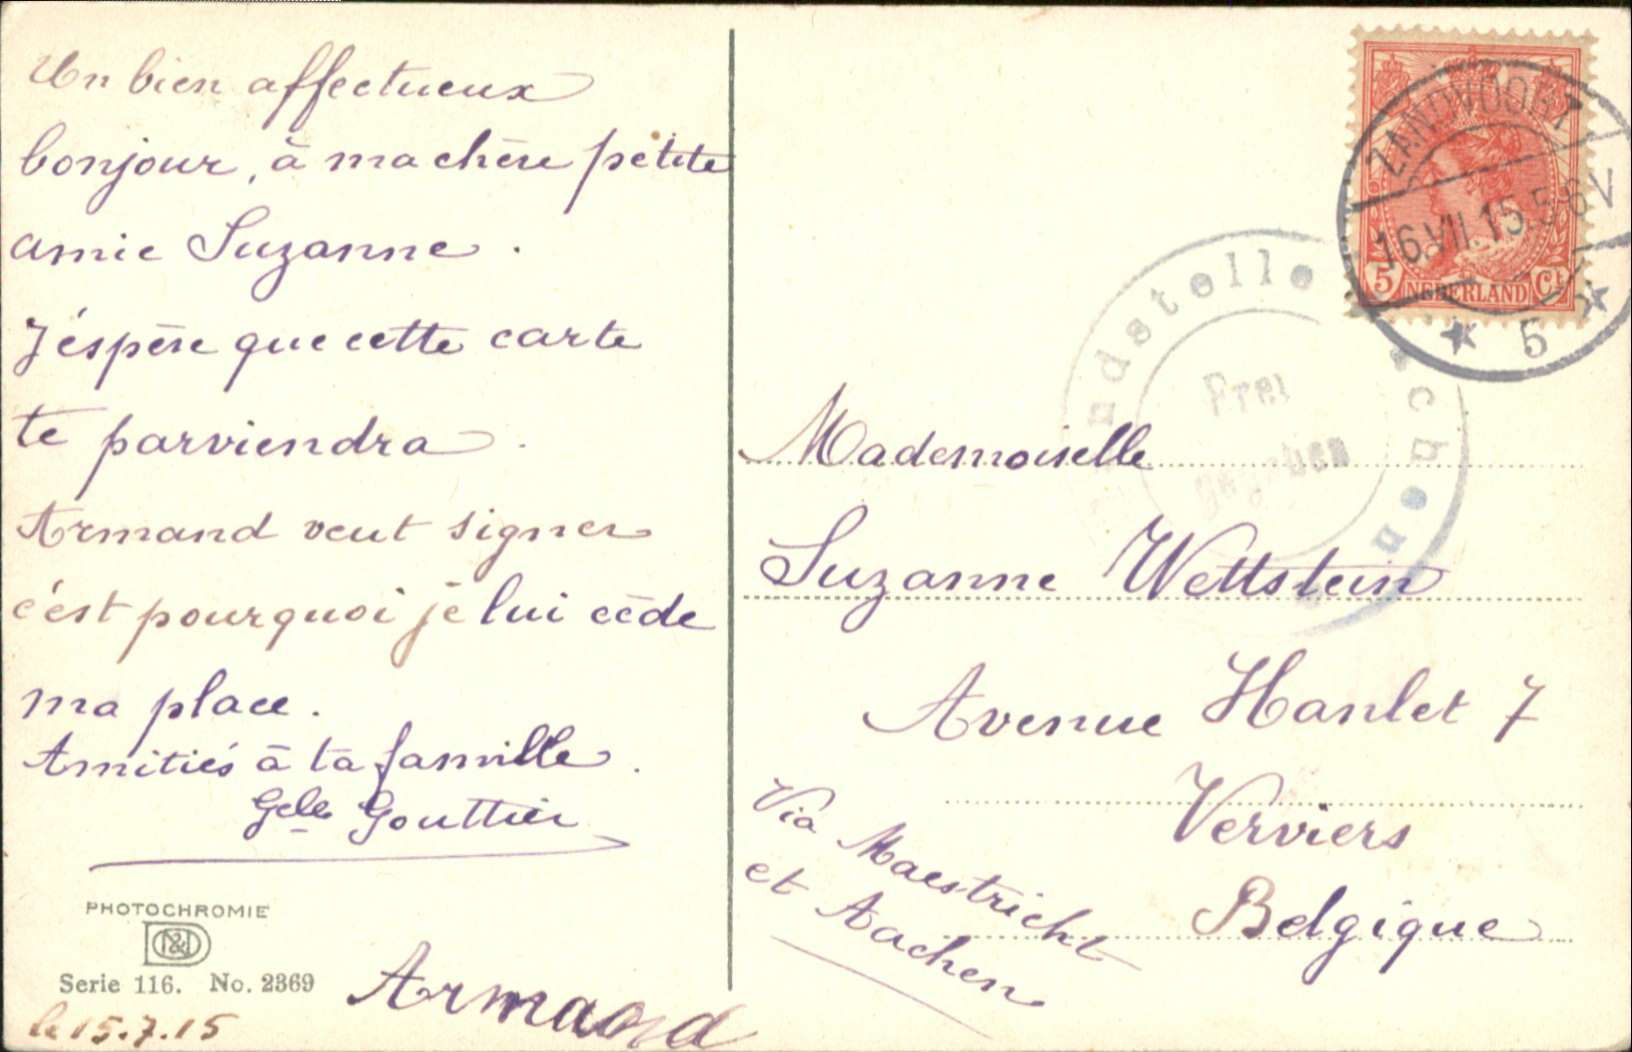 Un bien affectueux
bonjour, à ma chère petite
amie Suzanne.
J'éspère que cette carte
te parviendra.
Armand veut signer
c'est pourquoi je lui cède
ma place.
Amitiés à ta famille.
Gouttier
PHOTOCHROMIE
N&D
Serie 116. No. 2369
le 15.7.15
Armand
ZANDVOORT
16.VII.15.5-6V
5
5 NEDERLAND Ct
Frei
gegeben
Mademoiselle
Suzanne Wettstein
Avenue Hanlet 7
Verviers
Belgique
Via Maestricht
et Aachen